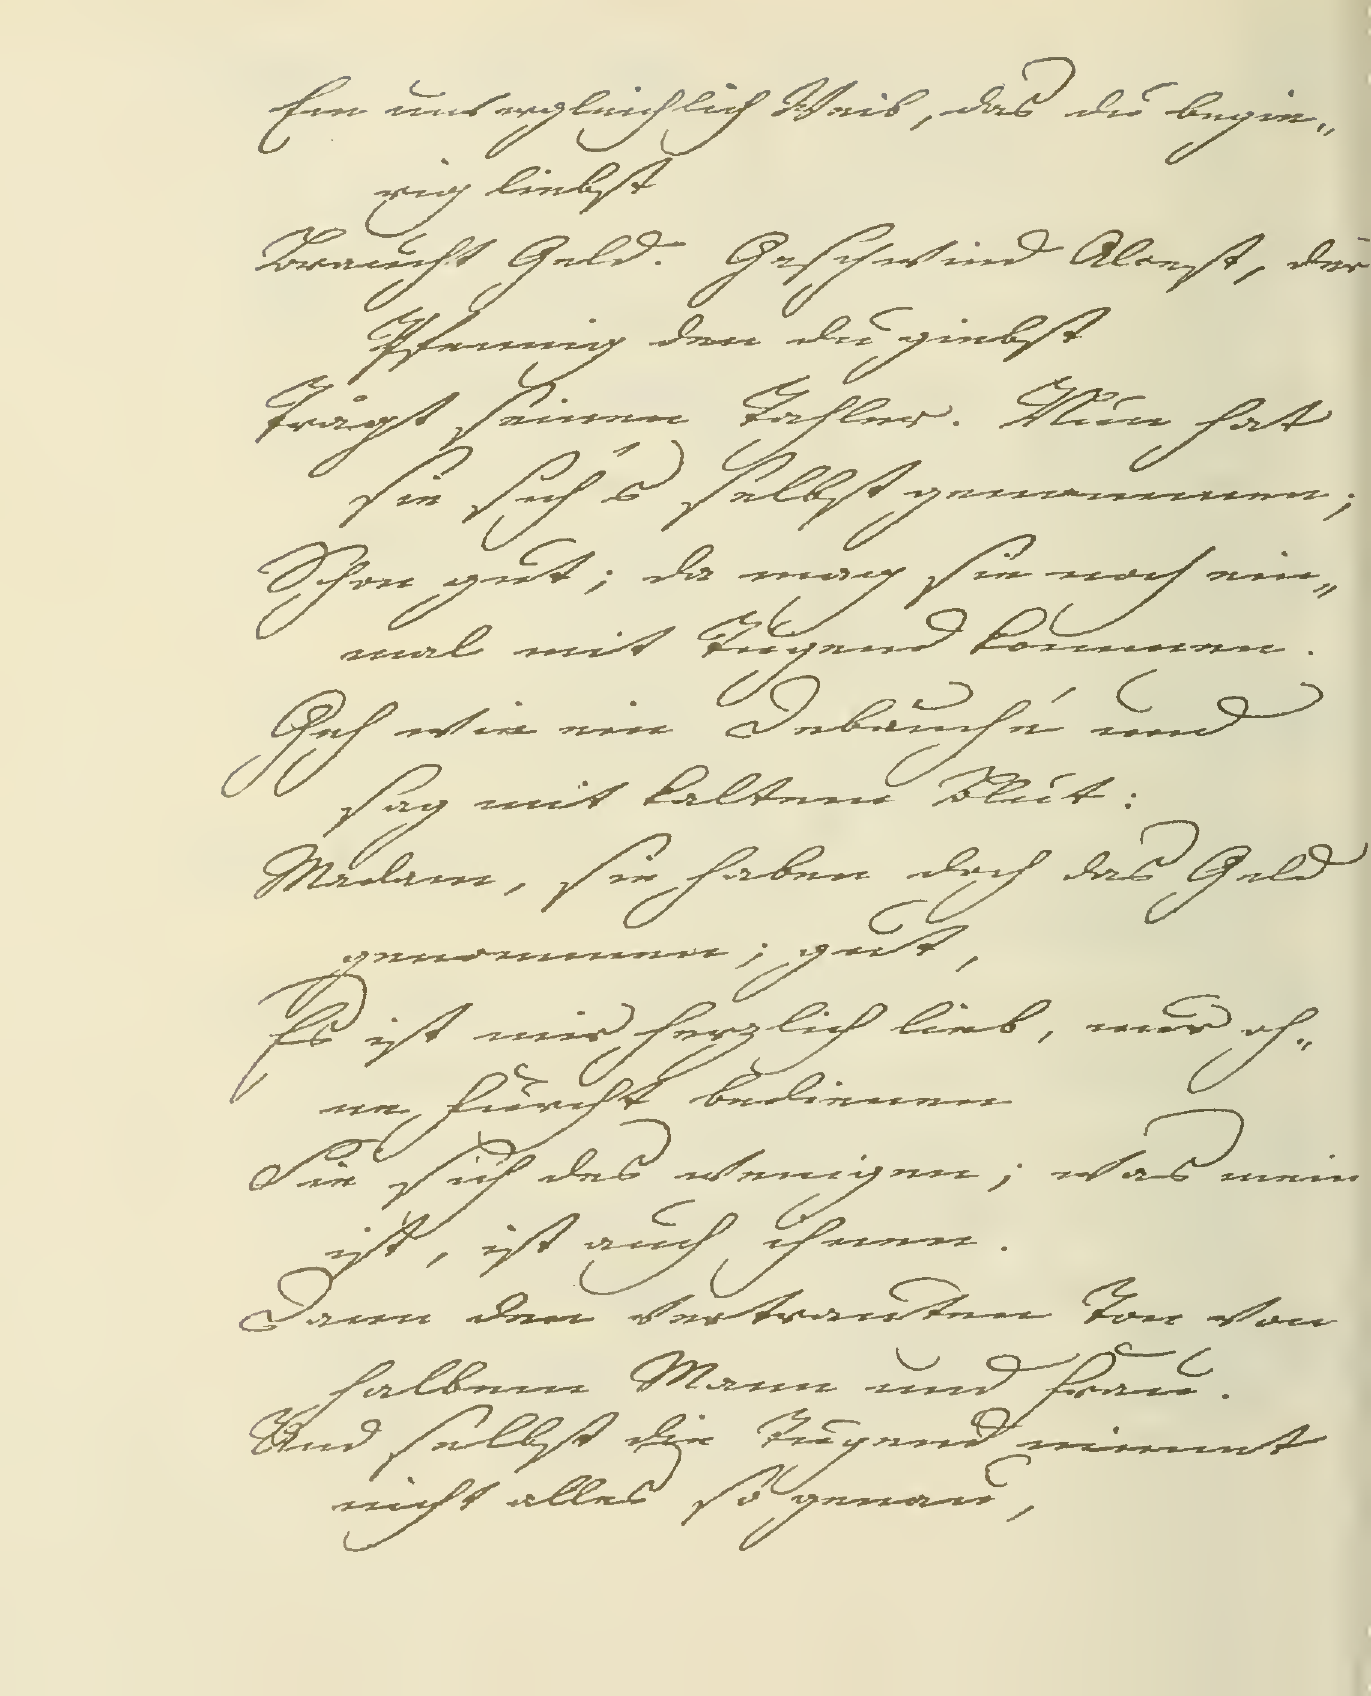 Ein unvergleichlich Weib, das du begie„
rig liebst
Braucht Geld. Geschwind Alcest, der
Pfennig den du giebst
Trägt seinen Tahler. Nun hat
sie sich's selbst genommen;
Schon gut; da mag sie noch ein„
mal mit Tugend kommen.
Geh wie ein Debauché und
sag mit kaltem Blut:
Madam, sie haben doch das Geld
genommen; gut,
Es ist mir herzlich lieb, nur oh„
ne Furcht bedienen
Sie sich des wenigen; was mein
ist, ist auch ihnen.
Dann den vertrauten Ton von
halbem Mann und Frau.
Und selbst die Tugend nimmt
nicht alles so genau,